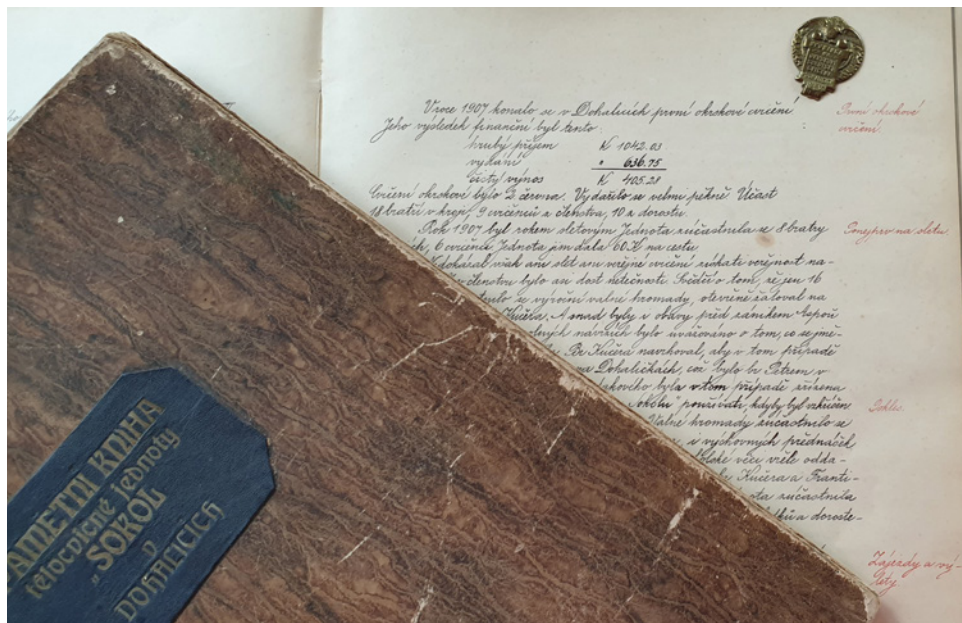 V roce 1907 konalo se v Dohalicích první okrskové cvičení
Jeho výsledek finanční byl tento:
hrubý příjem K 1042.03
vydání " 636.75
čistý výnos K 405.28
Cvičení okrskové bylo 2. června. Vydařilo se velmi pěkně. Účast
18 bratří v kroji, 9 cvičenců z členstva, 10 z dorostu.
Rok 1907 byl rokem sletovým. Jednota zúčastnila se 8 bratry
6 cvičenci. Jednota jim dala 60 K na cestu
však ani slet ani veřejné cvičení získati veřejnost na-
členstvu bylo ani dost netečnosti. Svědčí o tom, že jen 16
se výroční valné hromady, otevřeně žaloval na
Kučera. A snad byly i obavy před zánikem. Aspoň
návrzích bylo uvažováno o tom, co se jmě-
Br. Kučera navrhoval, aby v tom případě
na Dohaličkách, což bylo br. Petrem v
takového byla v tom případě zřízena
používati, kdyby byl vzkříšen
Valné hromady zúčastnilo se
v výchovných přednášek
věci vřele oddá-
Kučera a Franti-
zúčastnila
a doroste-
První okrskové
cvičení.
Ponejprv na sletu.
Pokles.
Zájezdy a vý-
lety.
PAMĚTNÍ KNIHA
tělocvičné jednoty
„SOKOL
V
DOHALICÍCH